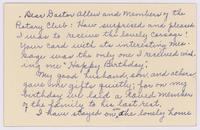 Dear Doctor Allen and Members of the
Rotary Club: How surprised and pleased
I was to receive the lovely corsage!
Your card with its interesting mes-
sage was the only one I received wish-
ing me "Happy Birthday".
My good husband, son, and others
gave me gifts quietly; for on my
birthday we laid a valued member
of the family to his last rest.
I have stayed on the lonely home